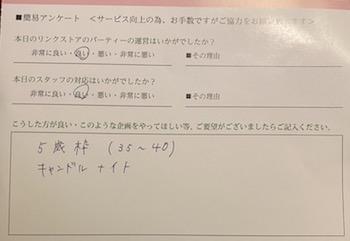 ■簡易アンケート ＜サービス向上の為、お手数ですがご協力をお願い致します＞
本日のリンクストアのパーティーの運営はいかがでしたか？
非常に良い・良い・悪い・非常に悪い ■その理由
本日のスタッフの対応はいかがでしたか？
非常に良い・良い・悪い・非常に悪い ■その理由
こうした方が良い・このような企画をやってほしい等、ご要望がございましたらご記入ください。
5歳枠 (35～40)
キャンドルナイト